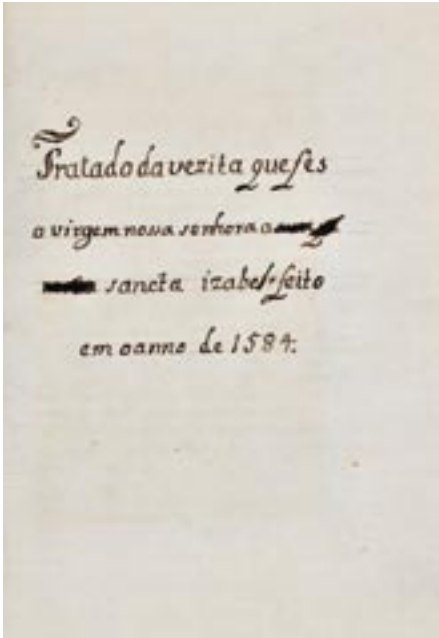 Tratado da vezita que fes
a virgem nossa senhora a
sancta izabel. feito
em o anno de 1584: